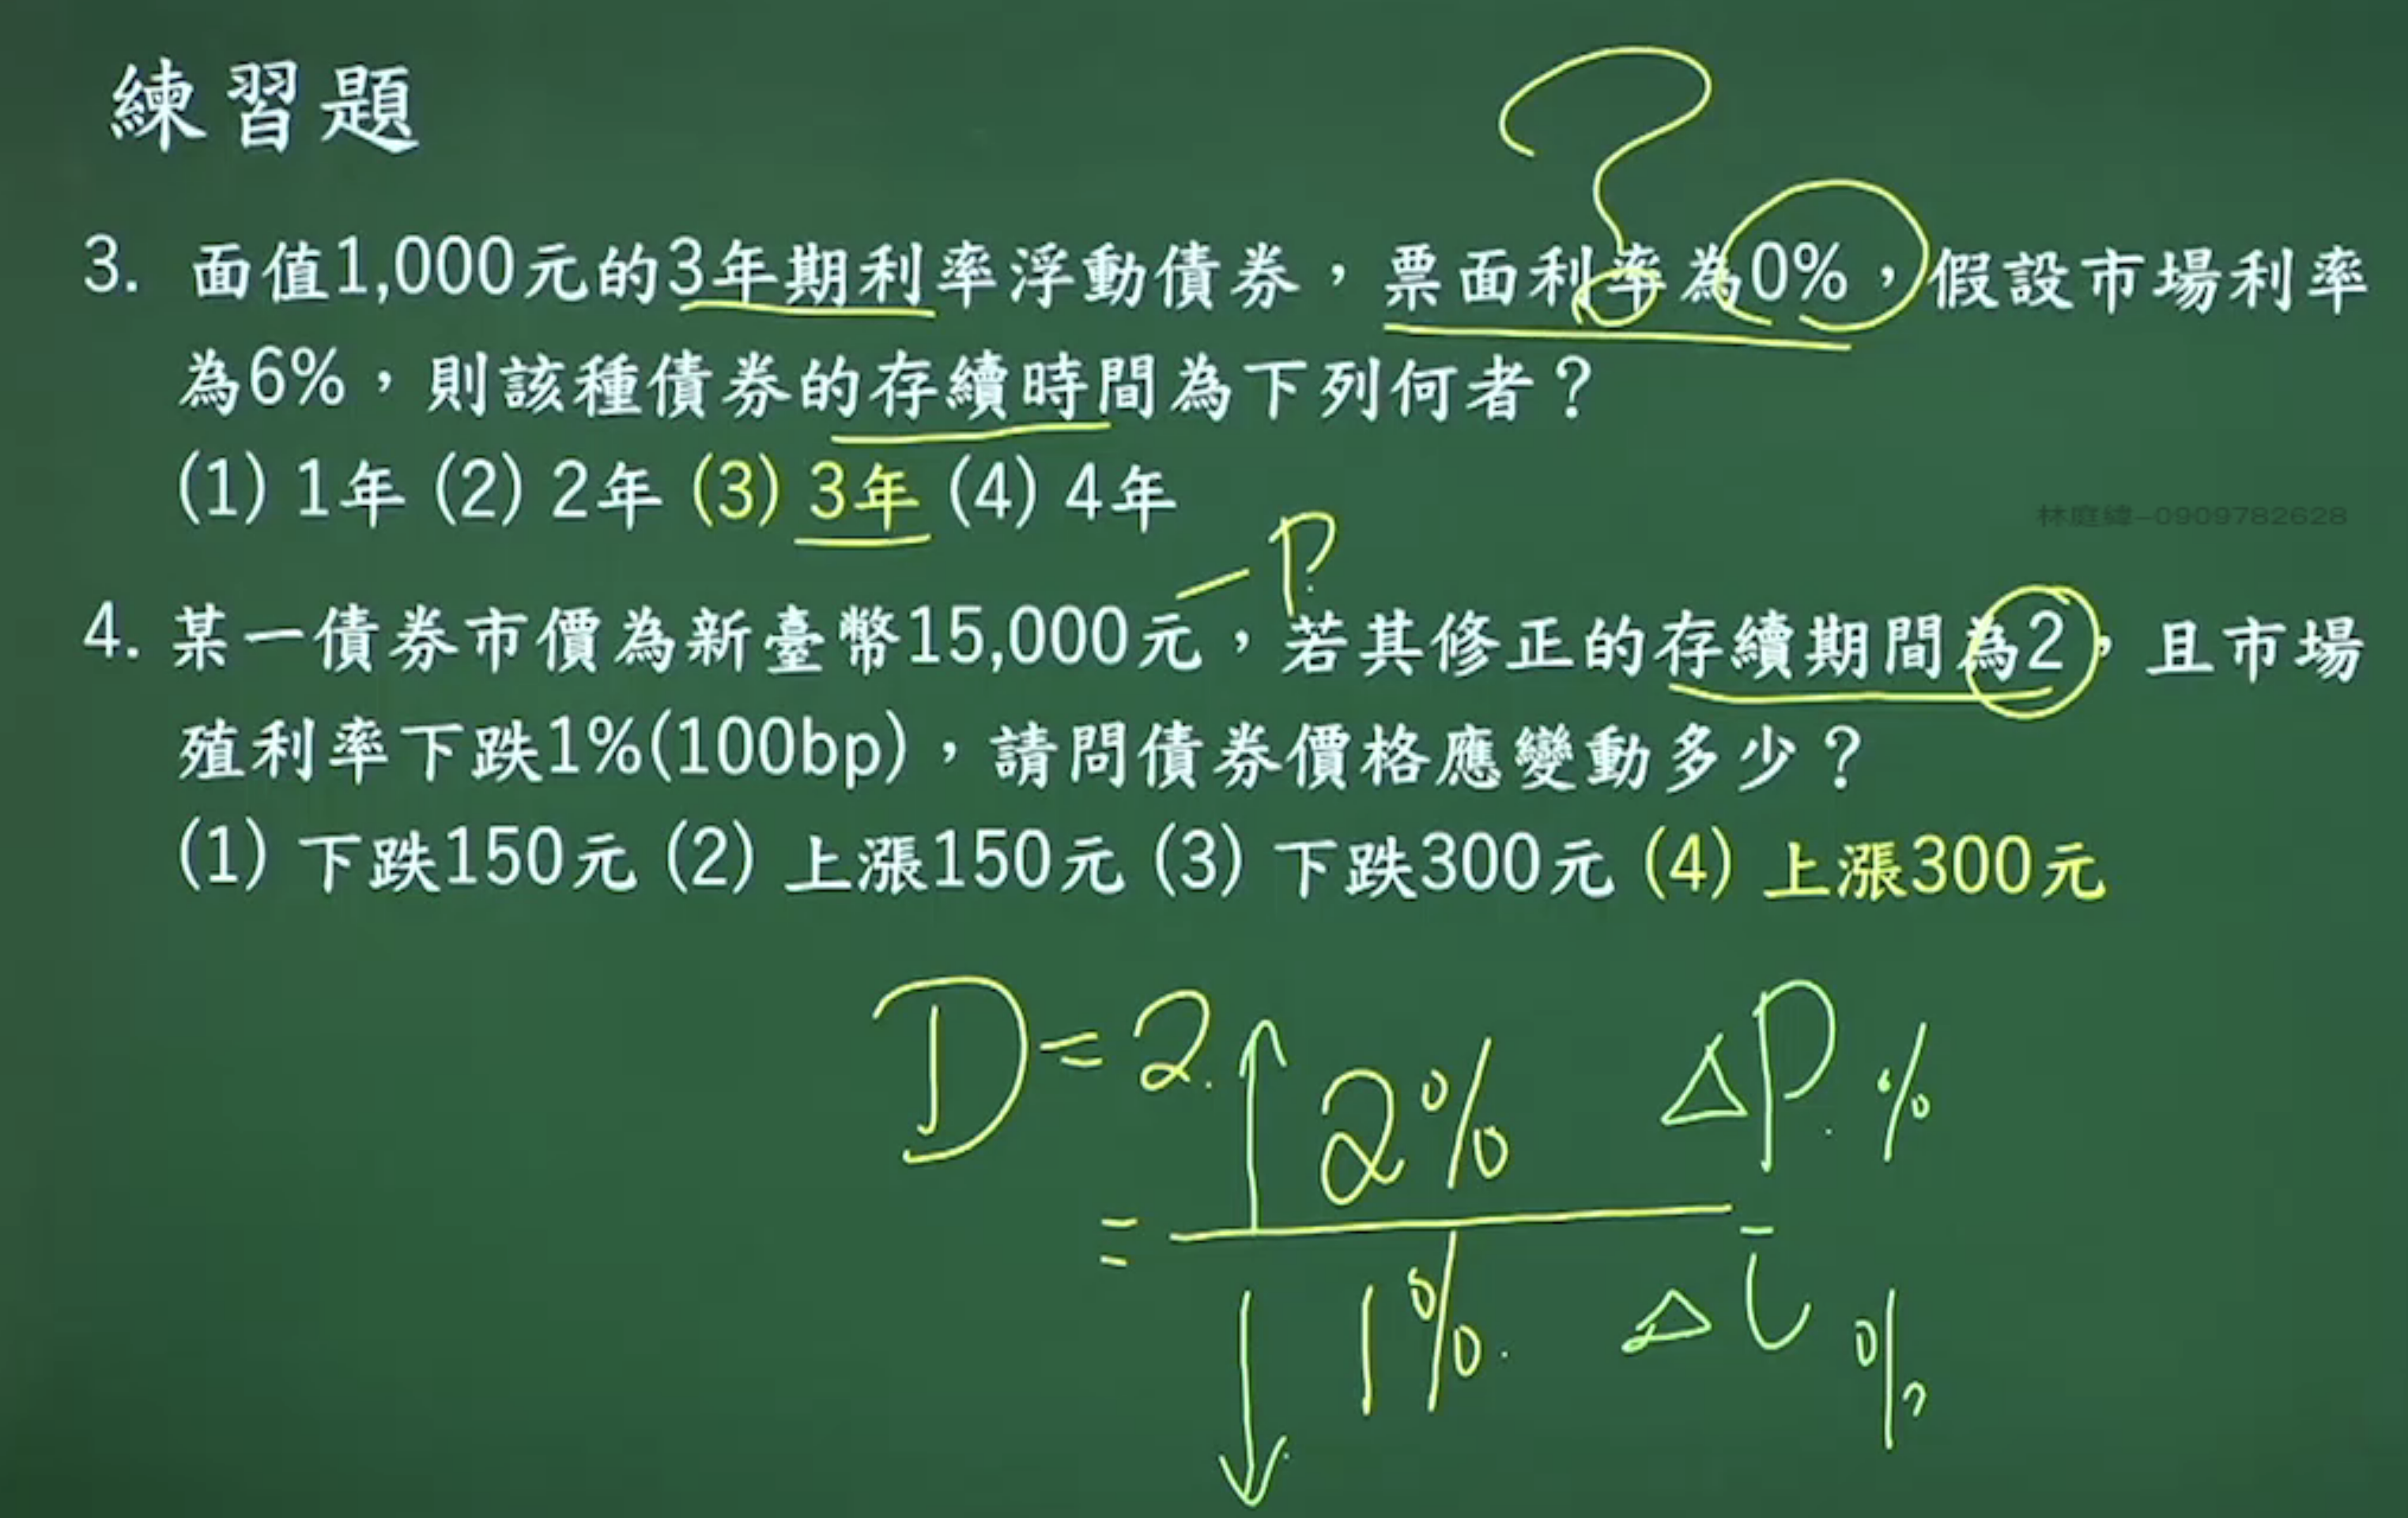 練習題
3. 面值1,000元的3年期利率浮動債券，票面利率為0%，假設市場利率
為6%，則該種債券的存續時間為下列何者？
(1) 1年 (2) 2年 (3) 3年 (4) 4年
林庭緯-0909782628
P
4. 某一債券市價為新臺幣15,000元，若其修正的存續期間為2，且市場
殖利率下跌1%(100bp)，請問債券價格應變動多少？
(1) 下跌150元 (2) 上漲150元 (3) 下跌300元 (4) 上漲300元
D=2.
↑ 2% ΔP. %
=
↓ 1%. Δi %